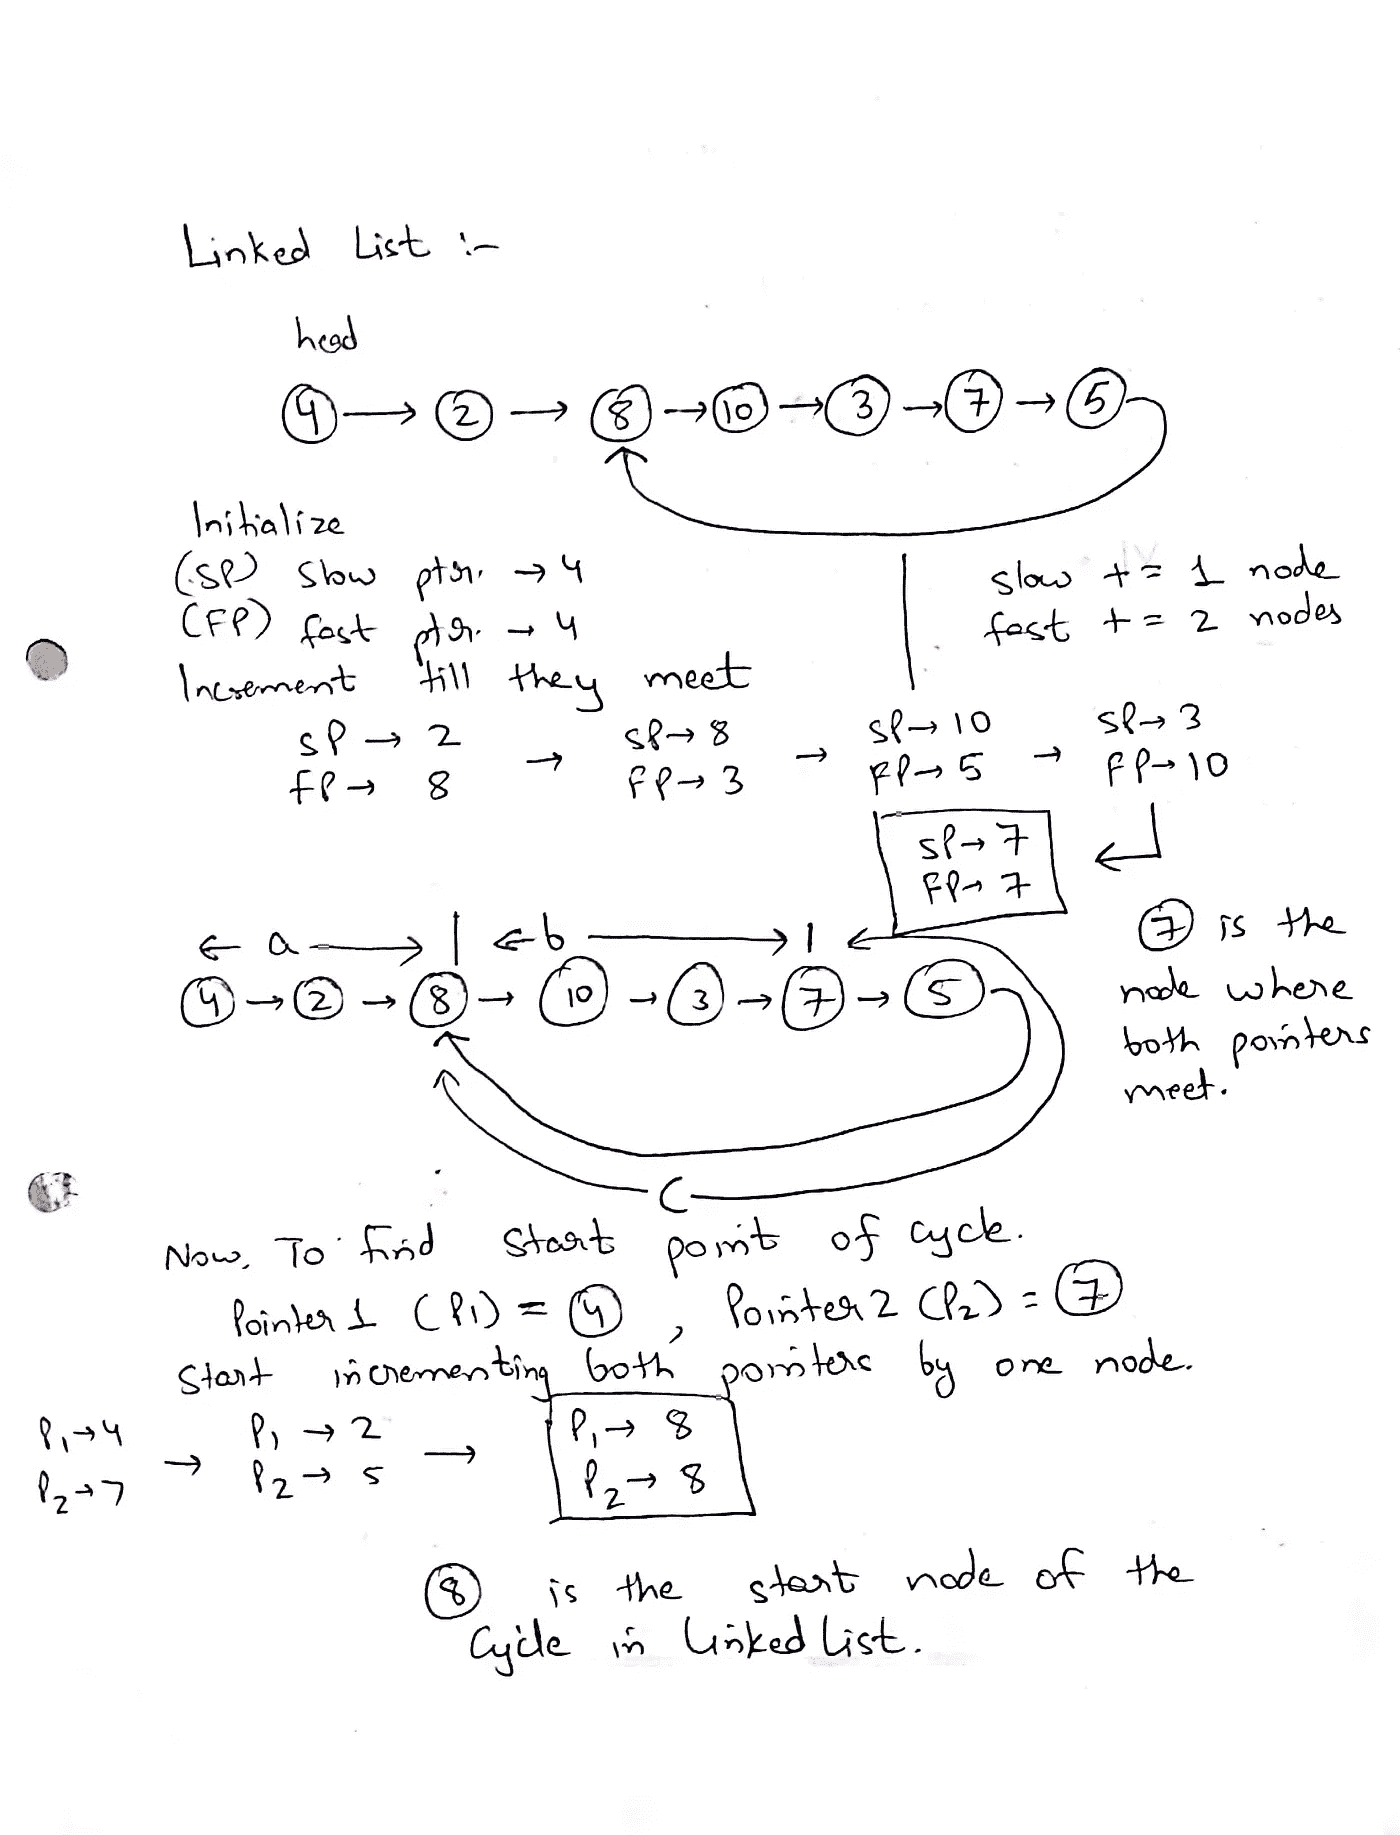 Linked List :-
head
4 → 2 → 8 → 10 → 3 → 7 → 5
Initialize
(SP) Slow ptr. → 4
(FP) fast ptr. → 4
slow += 1 node
fast += 2 nodes
Increment till they meet
SP → 2 → SP → 8 → SP → 10 → SP → 3
FP → 8 FP → 3 FP → 5 FP → 10
SP → 7
FP → 7
← a → | ← b → | ←
4 → 2 → 8 → 10 → 3 → 7 → 5
7 is the
node where
both pointers
meet.
C
Now, To find start point of cycle.
Pointer 1 (P1) = 4 , Pointer 2 (P2) = 7
Start incrementing both pointers by one node.
P1 → 4 → P1 → 2 → P1 → 8
P2 → 7 P2 → 5 P2 → 8
8 is the start node of the
Cycle in Linked List.